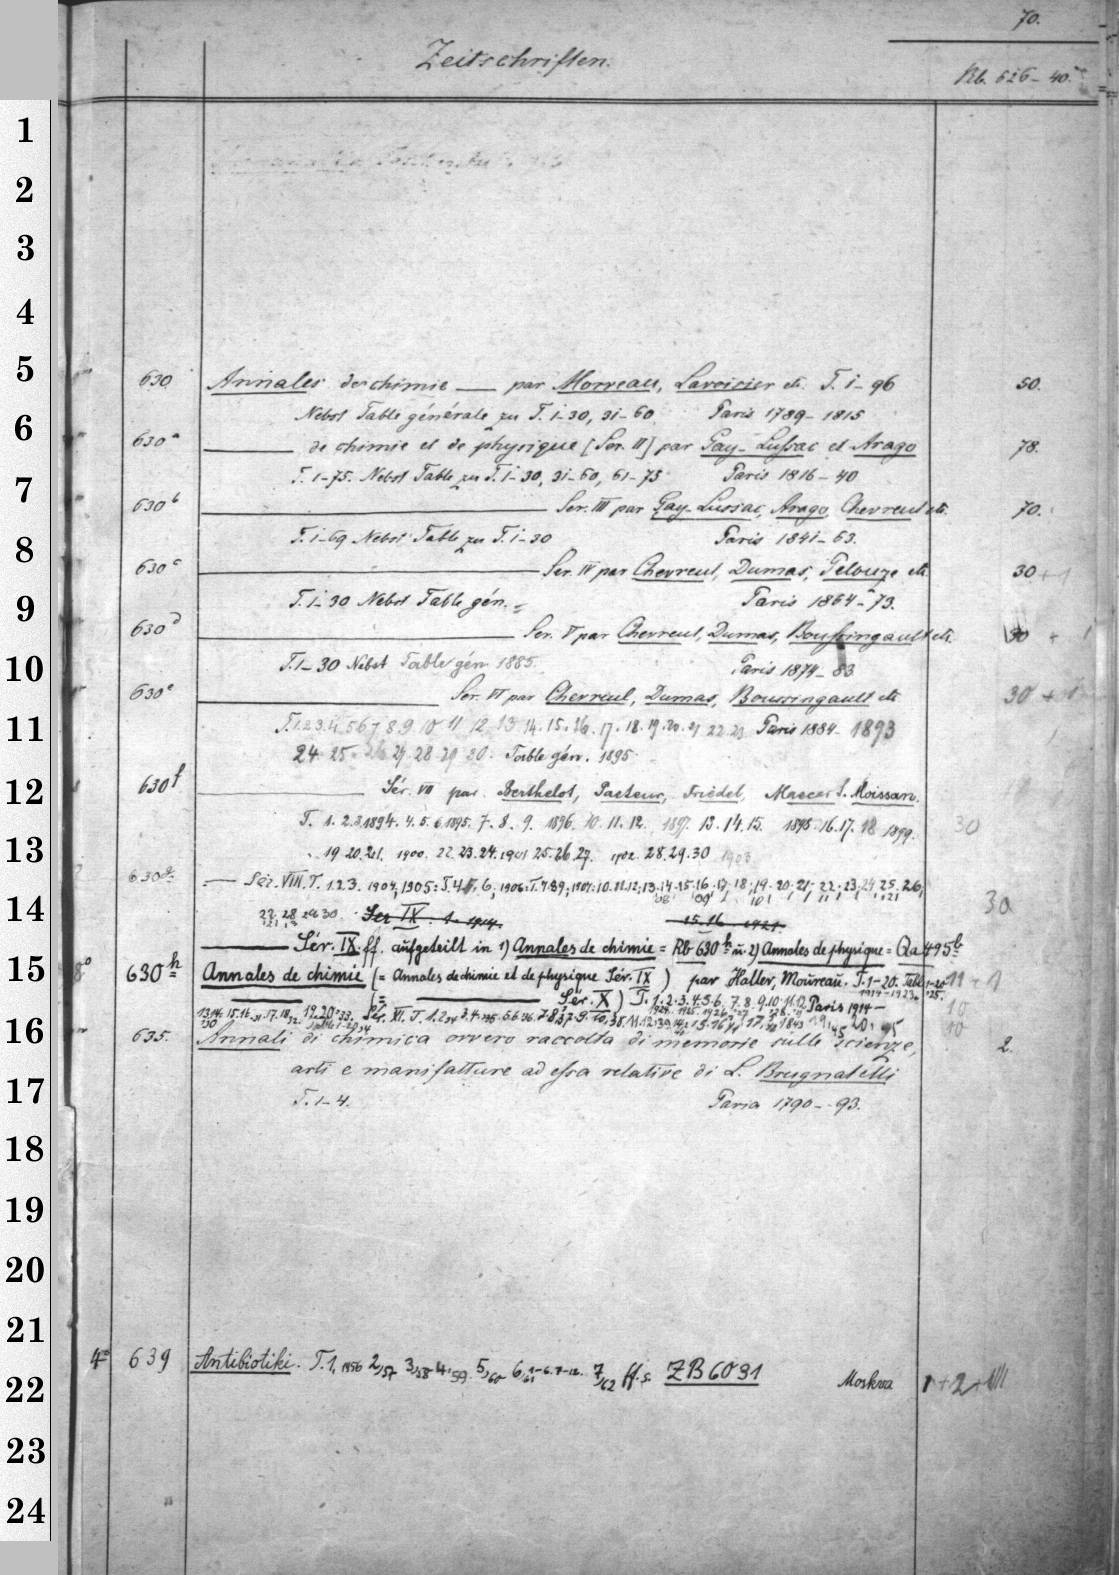 70.
Zeitschriften.
Rb. 626-40.
1
2
3
4
5
630 Annales de chimie — par Morveau, Lavoisier etc. T. 1-96 50.
Nebst Table générale zu T. 1-30, 31-60 Paris 1789-1815
6
630a — de chimie et de physique [Ser. II] par Gay-Lussac et Arago 78.
7
T. 1-75. Nebst Table zu T. 1-30, 31-60, 61-75 Paris 1816-40
630b — Ser. III par Gay-Lussac, Arago, Chevreul etc. 70.
8
T. 1-69 Nebst Table zu T. 1-30 Paris 1841-63.
630c — Ser. IV par Chevreul, Dumas, Pelouze etc 30+1
9
T. 1-30 Nebst Table gén. Paris 1864-73.
630d — Ser. V par Chevreul, Dumas, Boussingault etc. 30 + 1
10
T. 1-30 Nebst Table gén. 1885. Paris 1874-83
630e — Ser. VI par Chevreul, Dumas, Boussingault etc 30 + 1
11
T. 1 2 3. 4. 5 6 7 8. 9. 10 11 12 13 14. 15. 16. 17. 18. 19. 20. 21 22. 23 Paris 1884- 1893
24. 25. 26 27. 28. 29 30. Table gén. 1895.
12
630f — Sér. VII par. Berthelot, Pasteur, Friedel, Mascart. Moissan.
T. 1. 2. 3. 1894. 4. 5. 6 1895. 7. 8. 9. 1896. 10. 11. 12. 1897. 13. 14. 15. 1898. 16. 17. 18 1899. 30
13
19 20. 21. 1900. 22. 23. 24. 1901 25. 26. 27. 1902. 28. 29. 30 1903
630g — Sér. VIII. T. 1. 2. 3. 1904, 1905: T. 4. 5. 6; 1906: T. 7. 8. 9; 1907: 10. 11. 12; 13. 14. 15. 16. 17. 18; 19. 20. 21. 22. 23. 24 25. 26,
14
27. 28 29 30. Ser IX. 1. 1914. 15. 16 1921. 30
— Sér. IX ff. aufgeteilt in 1) Annales de chimie = Rb 630h u. 2) Annales de physique = Qa 495b
15
8° 630h Annales de chimie (= Annales de chimie et de physique Sér. IX) par Haller, Moureau. T. 1-20. Table 1-20 11 + 1
1914-1923.
(= — Sér. X) T. 1. 2. 3. 4. 5. 6. 7. 8. 9. 10. 11. 12. Paris 1914- 10
Sér. XI. T. 1. 2. 10
16
635. Annali di chimica ovvero raccolta di memorie sulle scienze, 2.
arti e manifatture ad essa relative di L. Brugnatelli
17
T. 1-4. Pavia 1790-93.
18
19
20
21
4° 639 Antibiotiki. T. 1, 1956 2/57 3/58 4/59. 5/60 6/61 1-6. 7-12. 7/62 ff. s. ZB 6091
22
Moskva 1+2+
23
24